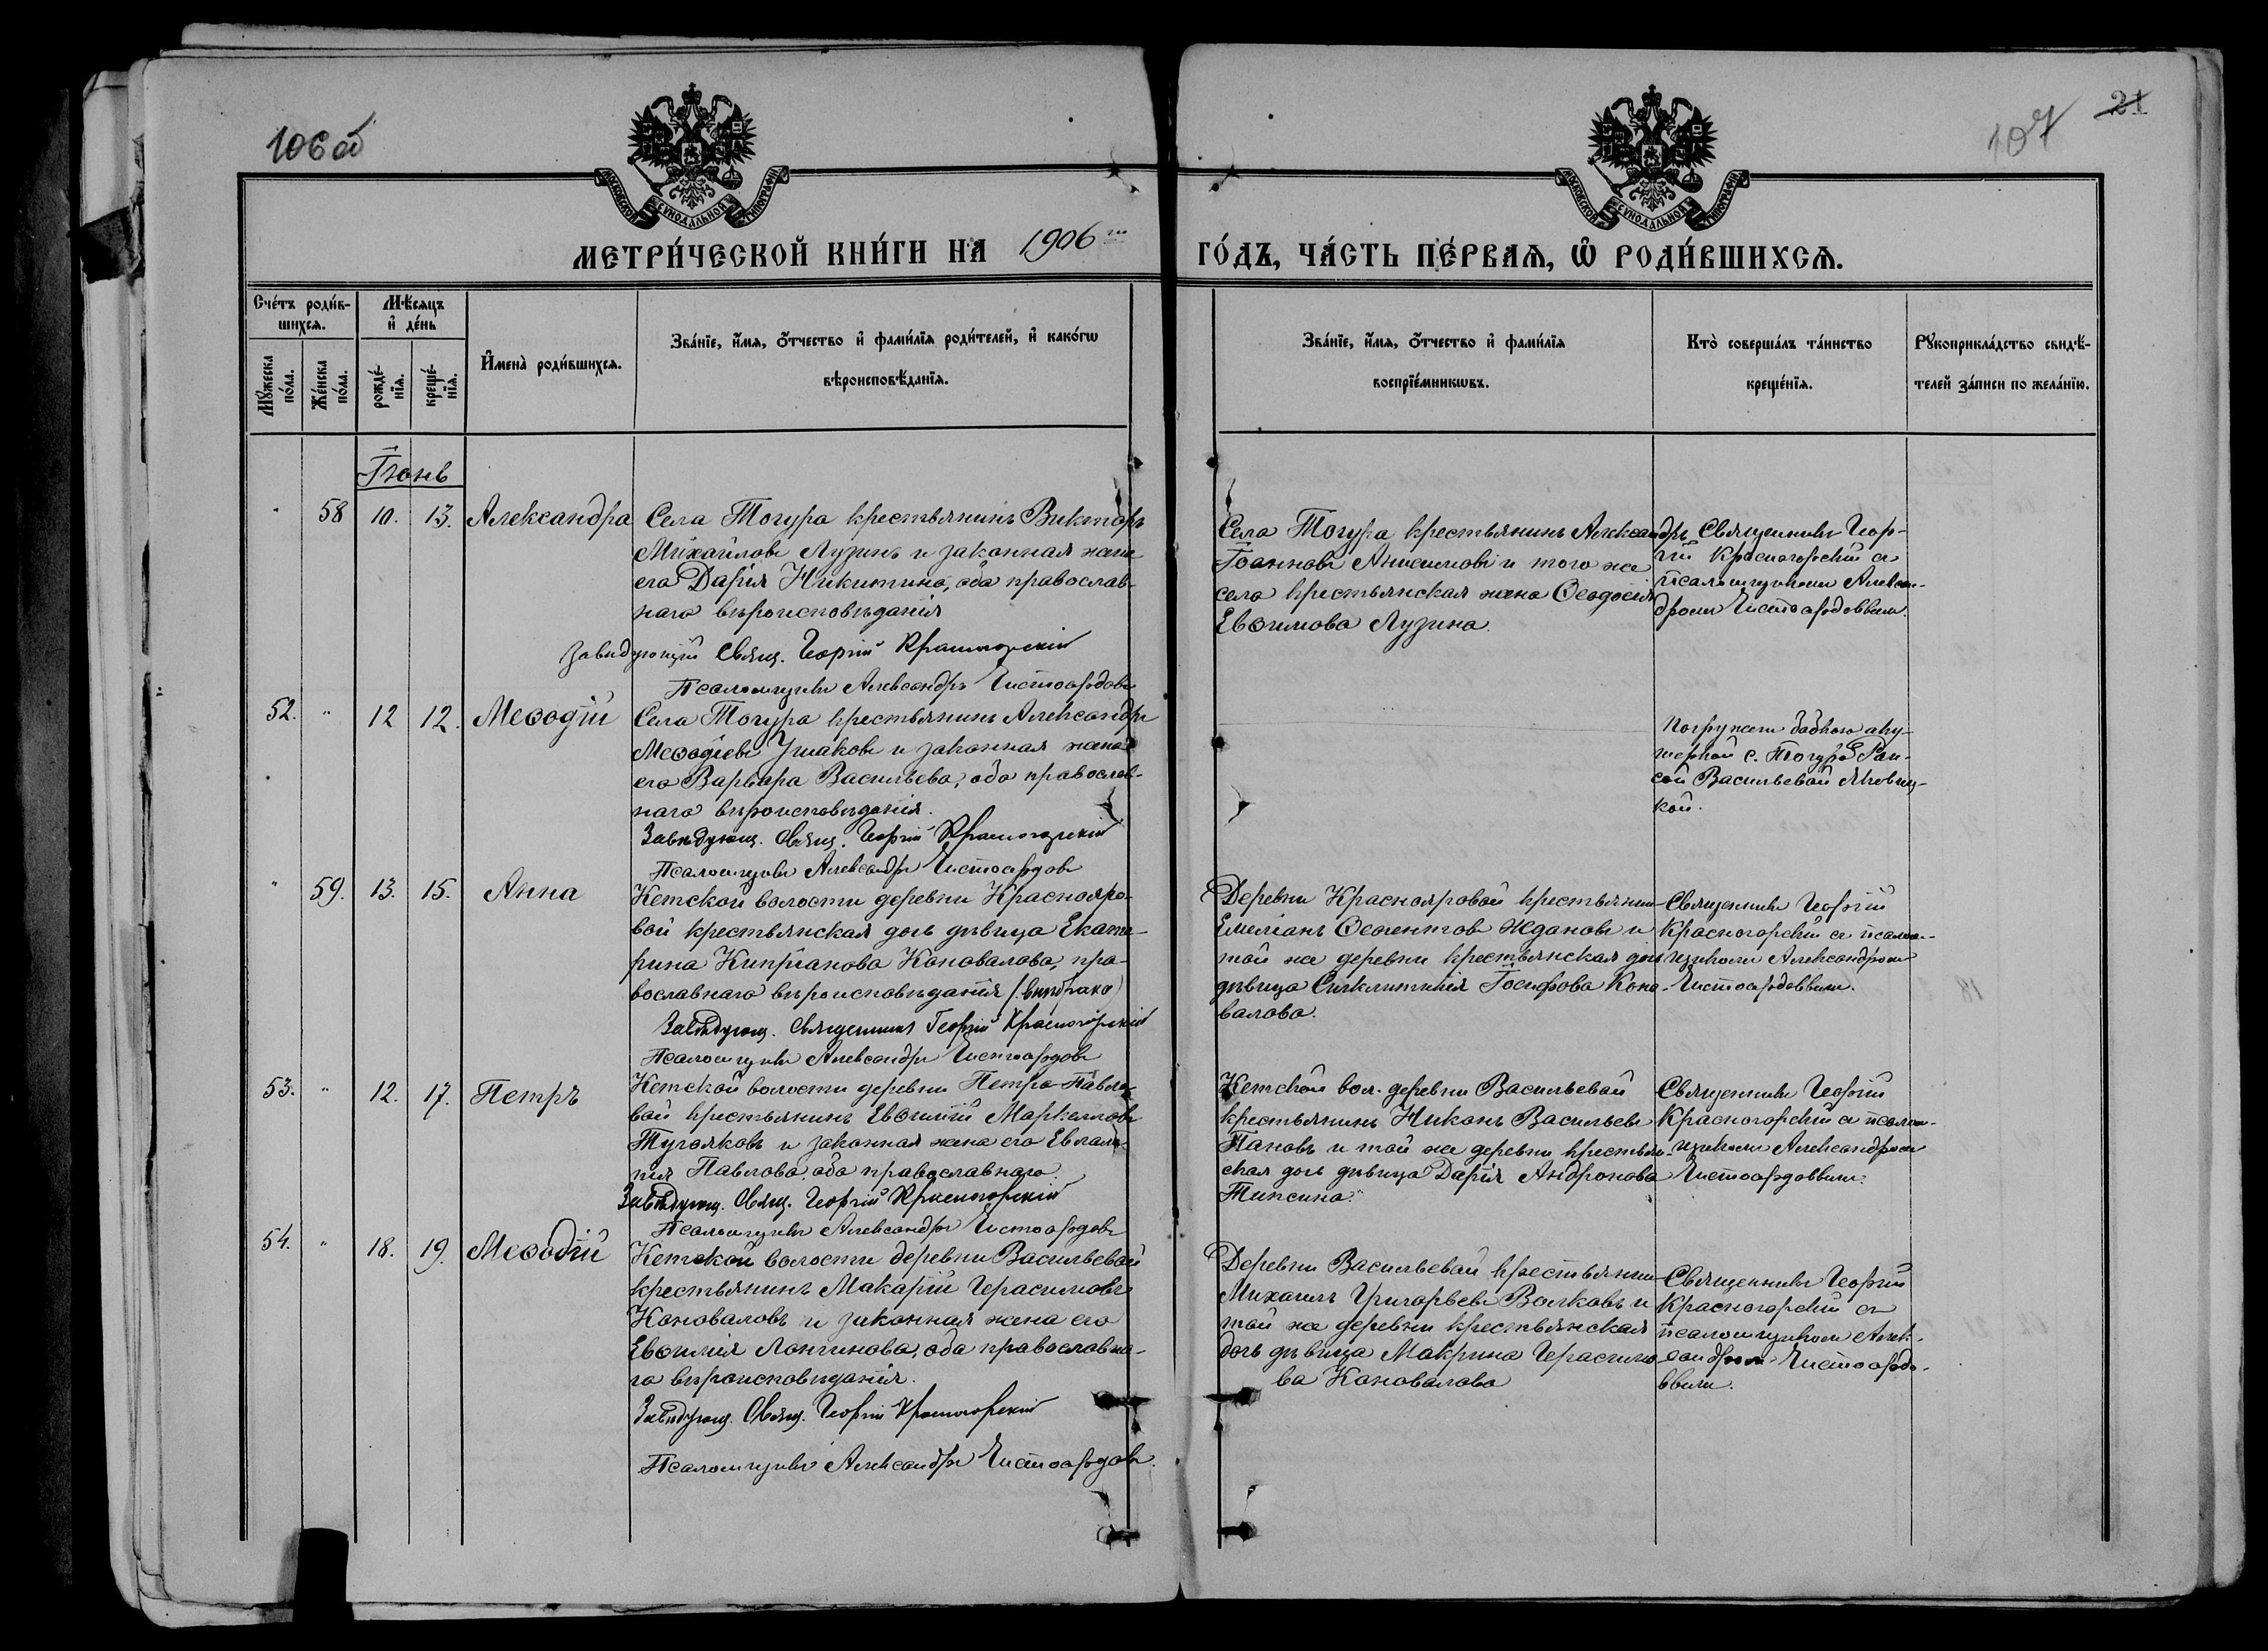 106 об
107
21
МОСКОВСКОЙ СУНОДАЛЬНОЙ ТИПОГРАФІИ
МОСКОВСКОЙ СУНОДАЛЬНОЙ ТИПОГРАФІИ
МЕТРИ́ЧЕСКОЙ КНИ́ГИ НА 1906 го ГО́ДЪ, ЧА́СТЬ ПЕ́РВАѦ, Ѡ҆ РОДИ́ВШИХСѦ.
Сче́тъ роди́в-
шихсѧ.
Мꙋ́жеска по́ла.
Же́нска по́ла.
Мѣ́сѧцъ
и҆ де́нь
рожде́-
нїѧ.
креще́-
нїѧ.
И҆мена̀ роди́вшихсѧ.
Зва́нїе, и҆́мѧ, ѻ҆́тчество и҆ фами́лїѧ роди́телей, и҆ како́гѡ
вѣроисповѣ́данїѧ.
Зва́нїе, и҆́мѧ, ѻ҆́тчество и҆ фами́лїѧ
воспрїе́мникѡвъ.
Кто̀ соверша́лъ та́инство
креще́нїѧ.
Рꙋкоприкла́дство свидѣ́-
телей за́писи по жела́нїю.
Іюнь
" 58 10. 13. Александра
Села Тогура крестьянинъ Викторъ
Михайловъ Лузинъ и законная жена
его Дарія Никитина, оба православ-
наго вѣроисповѣданія
Завѣдующій Свящ. Георгій Красногорскій
Псаломщикъ Александръ Чистосердовъ
Села Тогура крестьянинъ Александръ
Іоанновъ Анисимовъ и того же
села крестьянская жена Ѳеодосія
Евѳимова Лузина.
Священникъ Геор-
гій Красногорскій съ
псаломщикомъ Алексан-
дромъ Чистосердовымъ.
52. " 12 12. Меѳодій
Села Тогура крестьянинъ Александръ
Меѳодіевъ Ушаковъ и законная жена
его Варвара Васильева, оба православ-
наго вѣроисповѣданія.
Завѣдующ. Свящ. Георгій Красногорскій
Псаломщикъ Александръ Чистосердовъ
Погруженъ бабкою аку-
шеркой с. Тогура Раи-
сой Васильевой
кой.
" 59. 13. 15. Анна
Кетской волости деревни Краснояро-
вой крестьянская дочь дѣвица Екате-
рина Кипріанова Коновалова, пра-
вославнаго вѣроисповѣданія (внѣбрака)
Завѣдующ. Священникъ Георгій Красногорскій
Псаломщикъ Александръ Чистосердовъ
Деревни Краснояровой крестьянинъ
Емеліанъ Ждановъ и
той же деревни крестьянская дочь
дѣвица Синклитикія Іосифова Коно-
валова.
Священникъ Георгій
Красногорскій съ псалом-
щикомъ Александромъ
Чистосердовымъ.
53. " 12. 17. Петръ
Кетской волости деревни Петро-Павло-
вой крестьянинъ Евѳимій Маркелловъ
Тугояковъ и законная жена его Евлам-
пія Павлова, оба православнаго.
Завѣдующ. Свящ. Георгій Красногорскій
Псаломщикъ Александръ Чистосердовъ
Кетской вол. деревни Васильевой
крестьянинъ Никонъ Васильевъ
Пановъ и той же деревни крестьян-
ская дочь дѣвица Дарія Андронова
Типсина.
Священникъ Георгій
Красногорскій съ псалом-
щикомъ Александромъ
Чистосердовымъ.
54. " 18. 19. Меѳодій
Кетской волости деревни Васильевой
крестьянинъ Макарій Герасимовъ
Коноваловъ и законная жена его
Евѳимія Лонгинова, оба православна-
го вѣроисповѣданія.
Завѣдующ. Свящ. Георгій Красногорскій
Псаломщикъ Александръ Чистосердовъ.
Деревни Васильевой крестьянинъ
Михаилъ Григорьевъ Волковъ и
той же деревни крестьянская
дочь дѣвица Макрина Герасимо-
ва Коновалова
Священникъ Георгій
Красногорскій съ
псаломщикомъ Алек-
сандромъ Чистосердо-
вымъ.